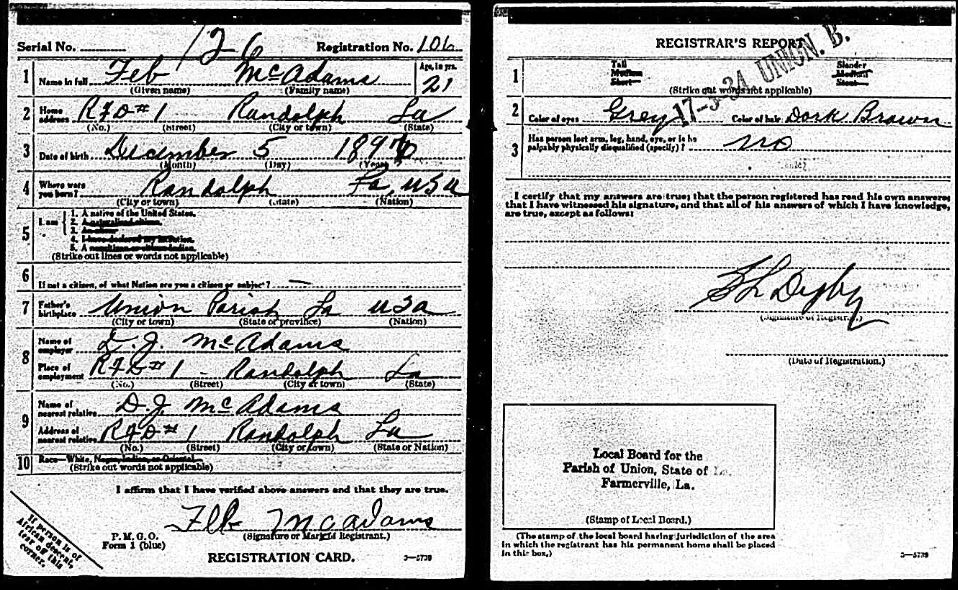 126
Serial No. Registration No. 106
1 Name in full Feb McAdams Age, in yrs. 21
(Given name) (Family name)
2 Home address RFD #1 Randolph La
(No.) (Street) (City or town) (State)
3 Date of birth December 5 1896
(Month) (Day) (Year)
4 Where were you born? Randolph La, USA
(City or town) (State) (Nation)
5 I am
1. A native of the United States.
2. A naturalized citizen.
3. An alien.
4. I have declared my intention.
5. A noncitizen or citizen Indian.
(Strike out lines or words not applicable)
6 If not a citizen, of what Nation are you a citizen or subject? —
7 Father's birthplace Union Parish La USA
(City or town) (State or province) (Nation)
8 Name of employer J. McAdams
Place of employment RFD #1 - Randolph La
(No.) (Street) (City or town) (State)
9 Name of nearest relative D J McAdams
Address of nearest relative RFD #1 Randolph La
(No.) (Street) (City or town) (State or Nation)
10 Race—White, Negro, Indian, or Oriental.
(Strike out words not applicable)
I affirm that I have verified above answers and that they are true.
Feb McAdams
P. M. G. O. (Signature or Mark of Registrant.)
Form 1 (blue)
REGISTRATION CARD. 3—5739
If person is of African descent tear off this corner.
REGISTRAR'S REPORT
17-3-34 UNION. B.
1 Tall Slender
Medium Medium
Short Stout
(Strike out words not applicable)
2 Color of eyes Grey Color of hair Dark Brown
3 Has person lost arm, leg, hand, eye, or is he
palpably physically disqualified (specify)? no
I certify that my answers are true; that the person registered has read his own answers;
that I have witnessed his signature, and that all of his answers of which I have knowledge,
are true, except as follows:
Digby
(Signature of Registrar.)
(Date of Registration.)
Local Board for the
Parish of Union, State of La.
Farmerville, La.
(Stamp of Local Board.)
(The stamp of the local board having jurisdiction of the area
in which the registrant has his permanent home shall be placed
in this box.) 3—5739